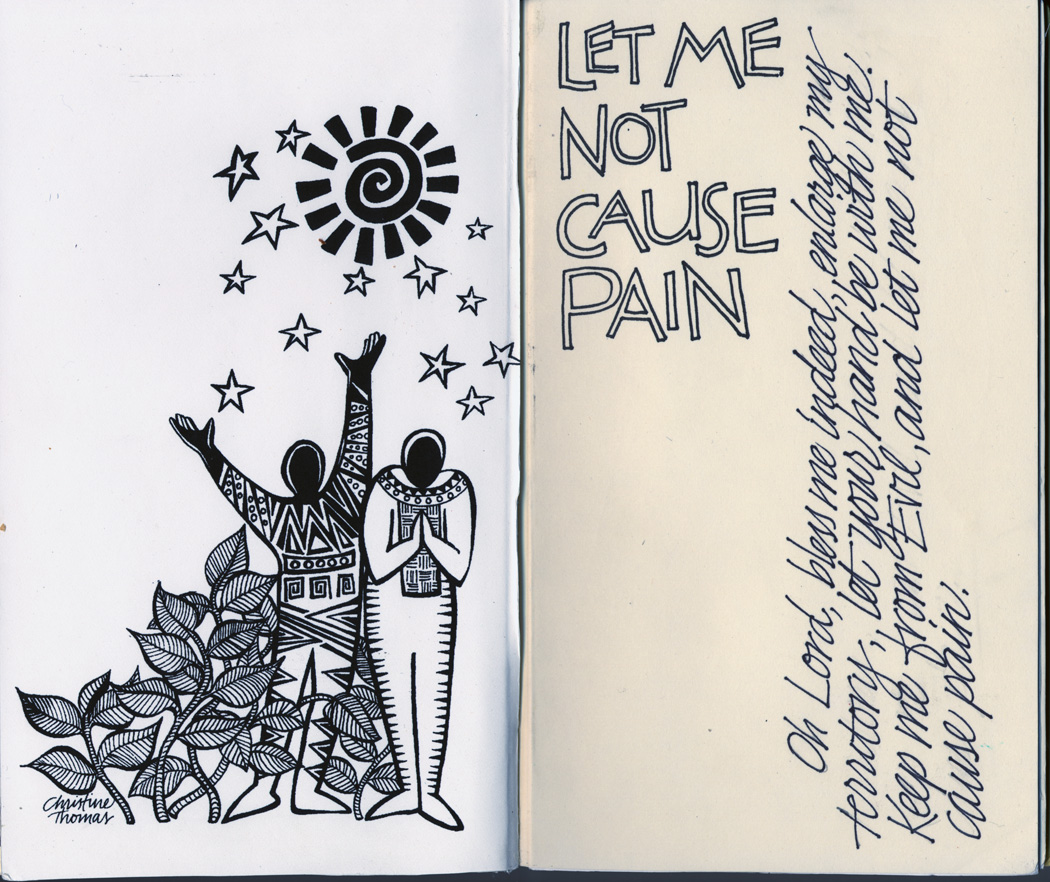 Christine
Thomas
LET ME
NOT
CAUSE
PAIN
Oh Lord, bless me indeed,, enlarge my
terratory, let your hand be with me.
Keep me from Evil, and let me not
cause pain.